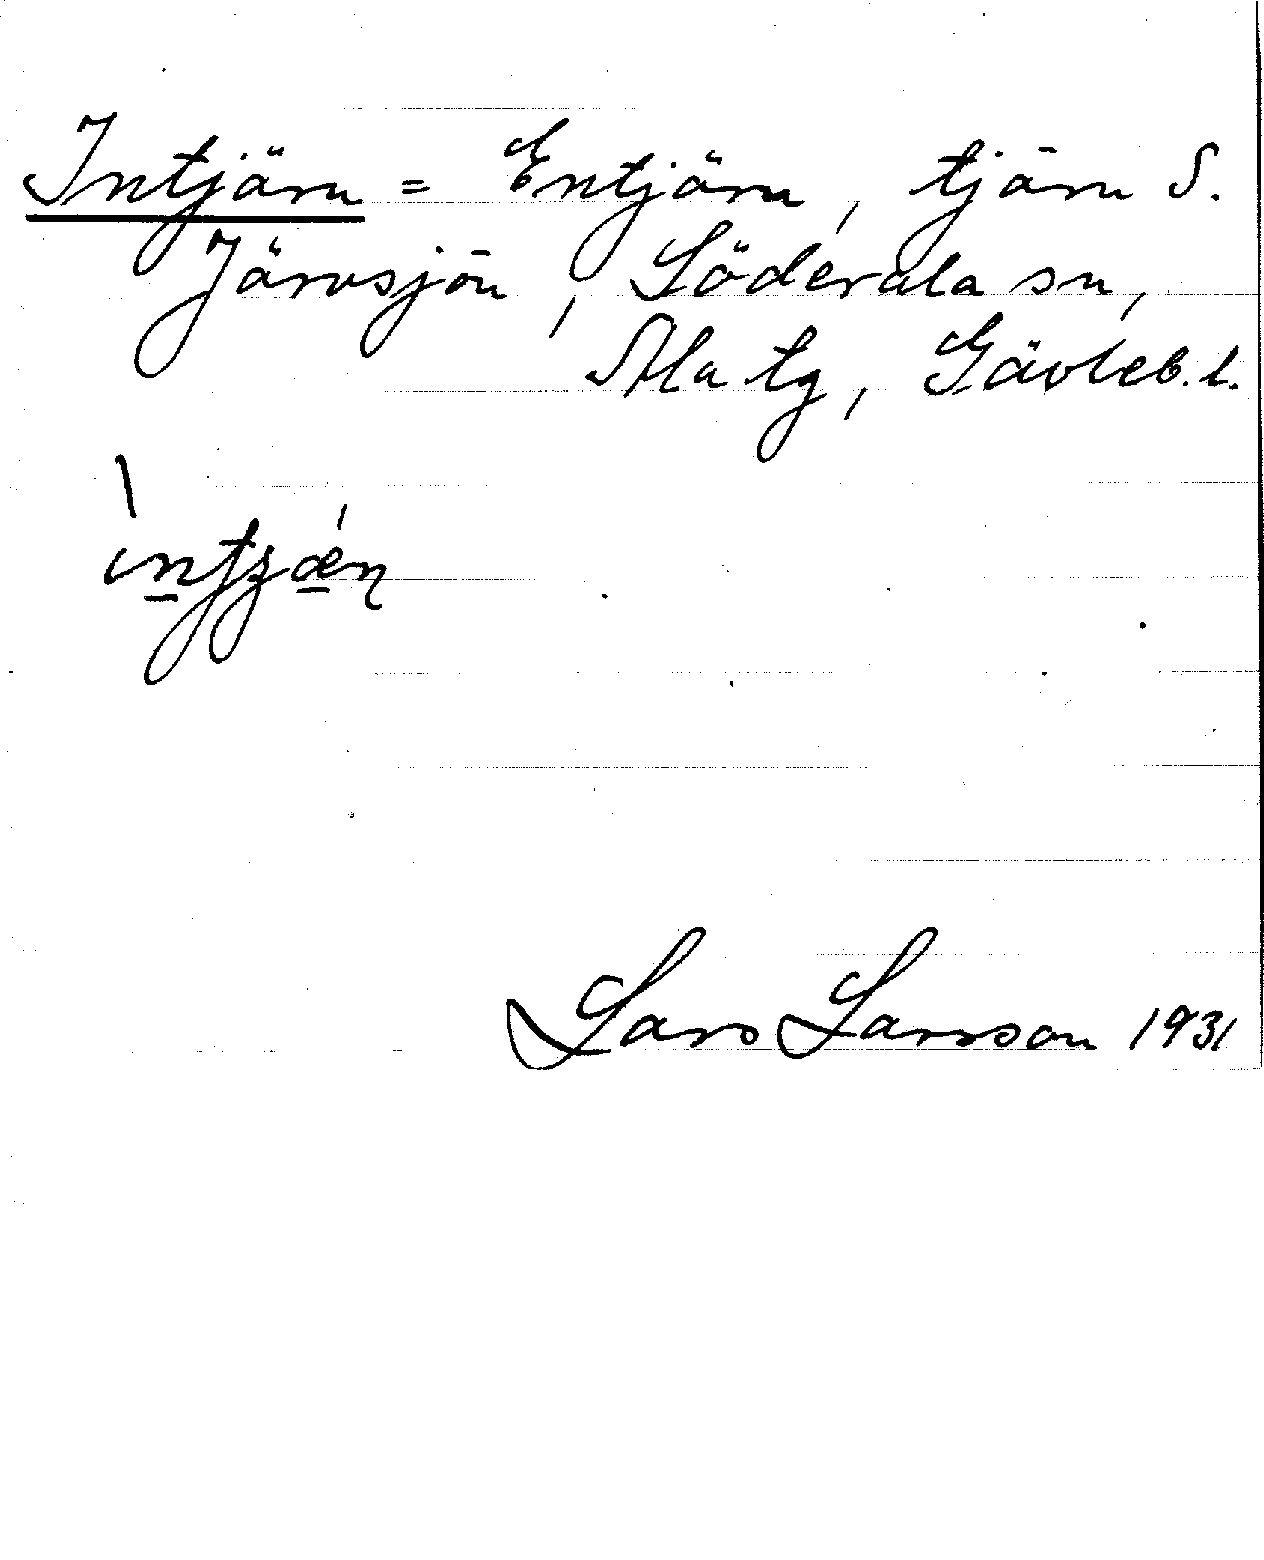 Intjärn = Entjärn, tjärn S.
Järvsjön, Söderala sn,
Ala tg, Gävleb. l.
Lars Larsson 1931